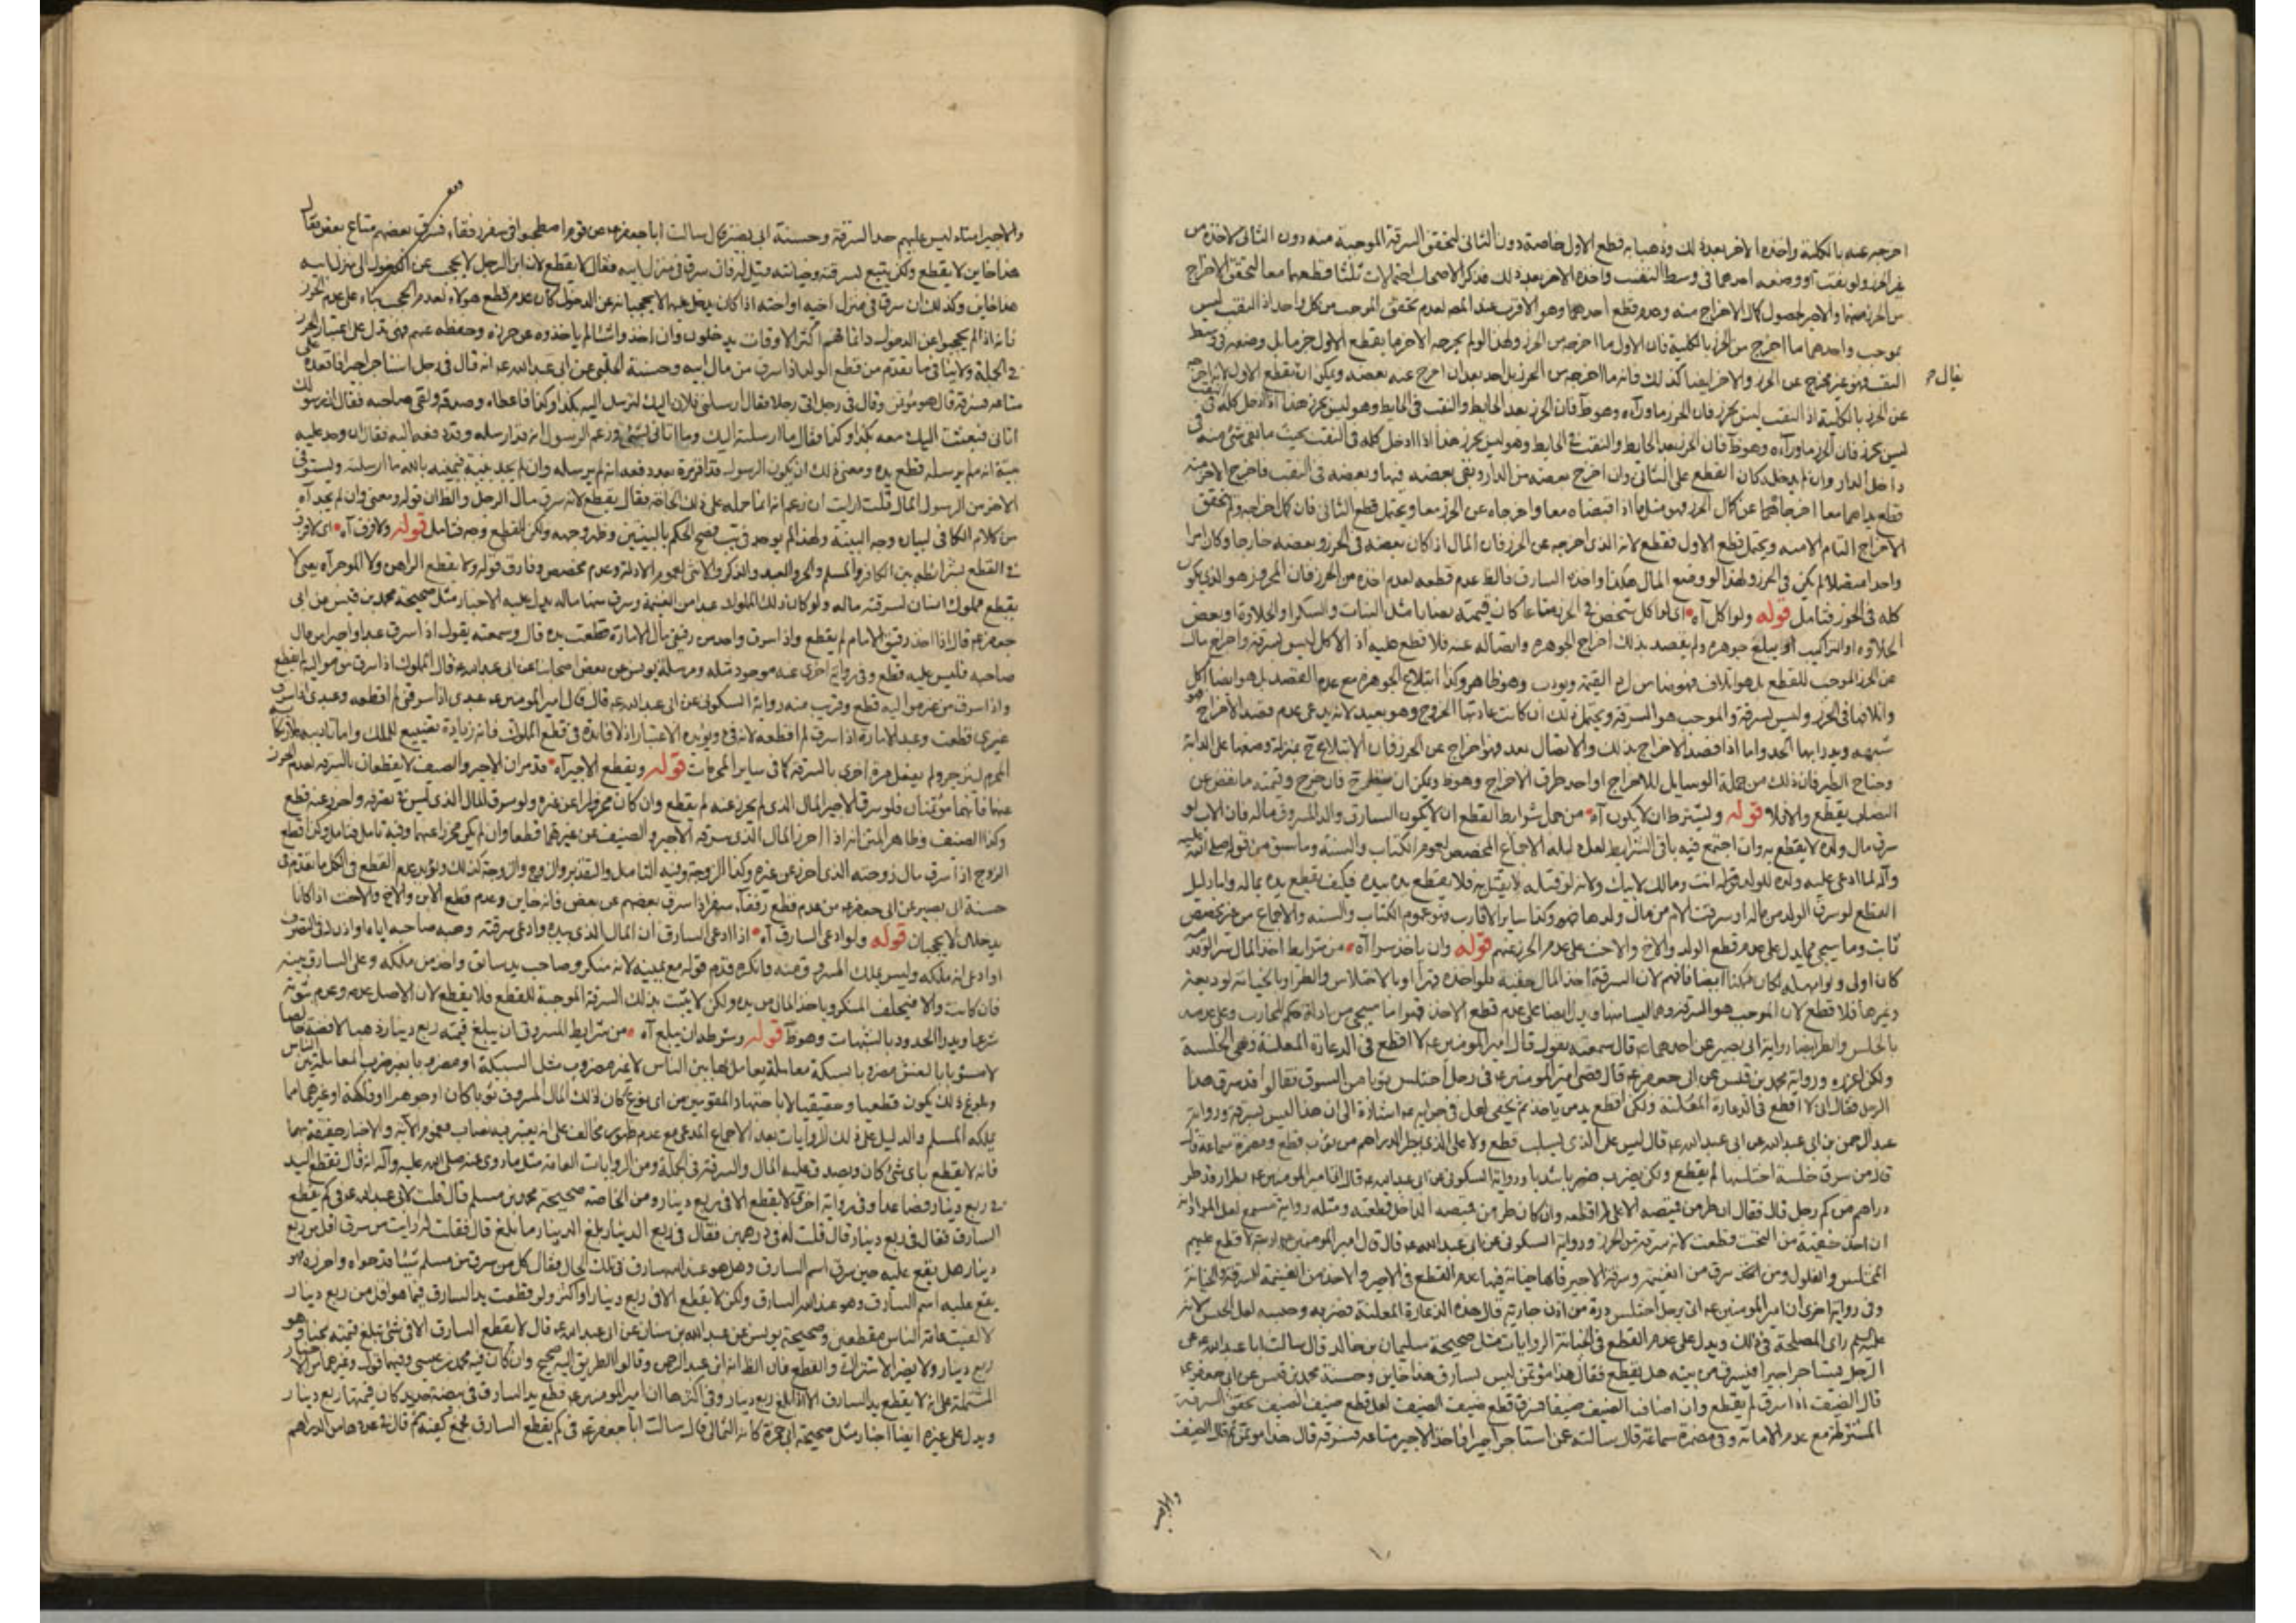 اخرجه عنه بالكلية واخذه الاخر بعد ذلك وذهبا به قطع الاول خاصة دون الثاني لتحقق السرقة الموجبة منه دون الثاني لاخذه من
غير الحرز ولو نقبا ووضعه احدهما في وسط النقب واخذه الاخر بعد ذلك فذكر الاصحاب احتمالات ثلثا قطعهما معا لتحقق الاخراج
من الحرز منهما والاخر لحصول كمال الاخراج منه وعدم قطع احدهما وهو الاقرب عند المص لعدم تحقق الموجب من كل واحد اذ النقب ليس
بموجب واحدهما ما اخرج من الحرز بالكلية فان الاول ما اخرجه من الحرز ولهذا لو لم يخرجه الاخر ما يقطع الاول جزما بل وضعه في وسط
النقب فهو غير مخرج عن الحرز والاخر ايضا كذلك فانه ما اخرجه من الحرز بل اخذ بعد ان اخرج عنه بعضه ويمكن ان يقطع الاول لانه اخرج
يقال ح
عن الحرز بالكلية اذ النقب ليس بحرز فان الحرز ماوراءه وهو ظ فان الحرز بعد الحايط والنقب في الحايط وهو ليس بحرز هذا اذا دخل كله في
ليس بحرز فان الحرز ماوراءه وهو ظ فان الحرز بعد الحايط والنقب في الحايط وهو ليس بحرز هذا اذا ادخل كله في النقب بحيث ما بقي شئ منه في
داخل الدار وان لم يدخله كان القطع على الثاني وان اخرج بعضه من الدار وبقي بعضه فيها وبعضه في النقب فاخرج الاخر منه
قطع يداهما معا اخرجاهما عن كمال الحرز فهو مثل ما اذا اقبضاه معا واخرجاه عن الحرز معا ويحتمل قطع الثاني فان كمال اخراجه ولم تحقق
الاخراج التام الا منه ويحتمل قطع الاول فقطع لانه الذي اخرجه عن الحرز فان المال اذا كان بعضه في الحرز وبعضه خارجا وكان امرا
واحدا متصلا لم يكن في الحرز ولهذا لو وضع المال هكذا واخذه السارق فالظ عدم قطعه لعدم اخذه من الحرز فان المحروز هو الذي يكون
كله في الحرز فتامل قوله ولو اكل آه اي لو اكل شخص في الحرز متاعا كان قيمته نصابا مثل النبات والسكر او الحلاوة او بعض
الحلاوه او التراكيب او يبلع جوهره ولم يقصد بذلك اخراج الجوهره وانفصاله عنه فلا قطع عليه اذ الاكل ليس بسرقة واخراج مال
عن الحرز الموجب للقطع بل هو اتلاف فهو ضامن لزم القيمة ويودب وهو ظاهر وكذا ابتلاع الجوهره مع عدم القصد بل هو ايضا اكل
واتلافها في الحرز وليس بسرقة والموجب هو السرقة ويحتمل ذلك ان كانت عادتها الخروج وهو بعيد لانه يدعي عدم قصد الاخراج فهو
شبهه ويدرا بها الحد واما اذا قصد الاخراج بذلك والانفصال بعد فهو اخراج عن الحرز فان الابتلاع ح بمنزلة وضعها على الدابة
وجناح الطير فان ذلك من جملة الوسايل للاخراج او احد طرق الاخراج وهو ظ ويمكن ان فان خرج وقيمته ما نقص عن
النصاب يقطع والا فلا قوله ويشترط ان لا يكون آه من جمل شرايط القطع ان لا يكون السارق والد المسروق ماله فان الاب لو
سرق مال ولده لا يقطع به وان اجتمع فيه باقي الشرايط لعل دليله الاجماع المخصص لعموم الكتاب والسنة وما سبق من قوله صلى الله عليه
وآله لما ادعى عليه ولده للولد قوله انت ومالك لابيك ولانه لو قتله لا يقتل به فلا يقطع يده بيده فكيف يقطع يده بماله واما دليل
القطع لو سرق الولد من ماله او سرقت الام من مال ولدها فهو وكذا ساير الاقارب فهو عموم الكتاب والسنه والاجماع من غير مخصص
ثابت وما سيجئ مما يدل على عدم قطع الولد والاخ والاخت على عدم الحرز عنهم قوله وان ياخذ سرا آه من شرايط اخذ المال سرا لو قد
كان اولى ولو ابهله لكان ممكنا ايضا فافهم لان السرقة اخذ المال خفية فلو اخذه قهرا او بالاختلاس والطر او بالخيانة لوديعة
وغيرها فلا قطع لان الموجب هو السرقة وهما ليسا منها ويدل ايضا على عدم قطع الاخذ قهرا ما سيجئ من ادلة حكم المحارب وعلى عدمه
بالخلس والطر ايضا رواية ابي بصير عن احدهما ع قال سمعته يقول قال امير المومنين ع لا اقطع في الدعارة المعلنة وهي الخلسة
ولكن اعزره ورواية محمد بن قيس عن ابي جعفر ع قال قضى امير المومنين ع في رجل اختلس ثوبا من السوق فقالوا قد سرق هذا
الرجل فقال اني لا اقطع في الدعارة المعلنة ولكن اقطع يد من ياخذ ثم يخفي لعل في جوابه ع اشارة الى ان هذا ليس بسرقة ورواية
عبد الرحمن بن ابي عبد الله عن ابي عبد الله ع قال ليس على الذي يسلب قطع ولا على الذي يطر الدراهم من ثوب قطع ومضمرة سماعة قال
قال من سرق خلسة اختلسها لم يقطع ولكن يضرب ضربا شديدا ورواية السكوني عن ابي عبد الله ع قال اتي امير المومنين ع بطرار قد طر
دراهم من كم رجل قال فقال ان طر من قميصه الاعلى لم اقطعه وان كان طر من قميصه الداخل قطعته ومثله رواية مسمع لعل المراد انه
ان اخذ خفية من التحت قطعت لانه سرقة من الحرز ورواية السكوني عن ابي عبد الله ع قال قال امير المومنين ع اربعة لا قطع عليهم
المختلس والغلول ومن سرق من الغنيمة وسرقة الاجير فانها خيانة فيها عدم القطع في الاجير والاخذ من الغنيمة للسرقة والخيانة
وفي رواية اخرى ان امير المومنين ع اتي برجل اختلس درة من اذن جارية قال هذه الدعارة المعلنة فضربه وحبسه لعل الحبس لانه
عليه السلم راى المصلحة في ذلك ويدل على عدم القطع في الخيانة الروايات مثل صحيحة سليمان بن خالد قال سالت ابا عبد الله ع عن
الرجل يستاجر اجيرا فيسرق من بيته هل يقطع فقال هذا مؤتمن ليس بسارق هذا خاين وحسنة محمد بن قيس عن ابي جعفر ع
قال الضيف اذا سرق لم يقطع وان اضاف الضيف ضيفا فسرق قطع ضيف الضيف لعل قطع ضيف الضيف تحقق السرقة
المشترطة مع عدم الامانة وفي مضمرة سماعة قال سالته عمن استاجر اجيرا فاخذ الاجير متاعه فسرقه قال هذا مؤتمن ثم قال الضيف
والاجير
والاجير امناء ليس عليهم حد السرقة وحسنة ابي بصير قال سالت ابا جعفر ع عن قوم اصطحبوا في سفر رفقاء فسرق بعضهم متاع بعض فقال
هذا خاين لا يقطع ولكن يتبع بسرقته وخيانته قيل له فان سرق في منزل ابيه فقال لا يقطع لان ابن الرجل لا يحجب عن الدخول الى منزل ابيه
هذا خاين وكذلك ان سرق في منزل اخيه او اخته اذا كان يدخل عليهما لا يحجبانه عن الدخول كان عدم قطع هولاء لعدم الحجب بناء على عدم الحرز
فانه اذا لم يحجبوا عن الدخول دائما فهم اكثر الاوقات يدخلون وان اخذوا شئا لم ياخذوه عن حرزه وحفظه عنهم فهي تدل على اعتبار الحرز
في الجملة ولا ينافي ما تقدم من قطع الولد اذا سرق من مال ابيه وحسنة الحلبي عن ابي عبد الله ع انه قال في رجل استاجر اجيرا فاقعده على
متاعه فسرقه قال هو مؤتمن وقال في رجل اتى رجلا فقال ارسلني فلان اليك لترسل اليه بكذا وكذا فاعطاه وصدقه ولقي صاحبه فقال ان رسولك
اتاني فبعثت اليك معه بكذا وكذا فقال ما ارسلته اليك وما اتاني بشئ وزعم الرسول انه قد ارسله وقد دفعه اليه فقال ان وجد عليه
بينة انه لم يرسله قطع يده ومعنى ذلك ان يكون الرسول قد اقر مرة بعد دفعه انه لم يرسله وان لم يجد بينة فيمينه بالله ما ارسلته ويستوفي
الاخر من الرسول المال قلت ارايت ان زعم انه انما حمله على ذلك الحاجة فقال يقطع لانه سرق مال الرجل والظ ان قوله ومعنى وان لم يجد آه
من كلام الكافي لبيان وجه البينة ولهذا لم يوجد في يب فصح الحكم بالبينتين وظهر وجهه ولكن القطع وجه فتامل قوله ولا فرق آه اي لا فرق
في القطع بشرايطه بين الكافر والمسلم والحر والعبد والذكر والانثى لعموم الادلة وعدم مخصص وفارق قوله ولا يقطع الراهن ولا الموجر آه يعني لا
يقطع مملوك انسان لسرقته ماله ولو كان ذلك المملوك عبدا من الغنيمة وسرق منها ماله يدل عليه الاخبار مثل صحيحة محمد بن قيس عن ابي
جعفر ع قال اذا اخذ رقيق الامام لم يقطع واذا سرق واحد من رقيقي مال الامارة قطعت يده قال وسمعته يقول اذا سرق عبد او اجير من مال
صاحبه فليس عليه قطع وفي رواية اخرى عنه موجود مثله ومرسلة يونس عن بعض اصحابنا عن ابي عبد الله ع قال المملوك اذا سرق من مواليه لم يقطع
واذا سرق من غير مواليه قطع وقريب منه رواية السكوني عن ابي عبد الله ع قال قال امير المومنين ع عبدي اذا سرقني لم اقطعه وعبدي اذا سرق
غيري قطعت وعبد الامارة اذا سرق لم اقطعه لانه فئ ويؤيده الاعتبار اذ لا فائدة في قطع المملوك فانه زيادة تضييع للملك واما تاديبه
المحرم لينزجر ولم يفعل مرة اخرى بالسرقة كما في ساير المحرمات قوله ويقطع الاجير آه قد مر ان الاجير والضيف لا يقطعان بالسرقة لعدم الحرز
عنهما فانهما مؤتمنان فلو سرق الاجير المال الذي لم يحرز عنه لم يقطع وان كان محروزا عن غيره ولو سرق المال الذي ليس في تصرفه واحرز عنه قطع
وكذا الضيف وظاهر المتن انه اذا احرز المال الذي سرقه الاجير والضيف عن غيرهما قطعا وان لم يكن محرزا عنهما وفيه تامل فتامل وكذا قطع
الزوج اذا سرق مال زوجته الذي احرز عن غيره وكذا الزوجة وفيه التامل والتقدير والزوج والزوجة كذلك ويؤيد عدم القطع في الكل ما تقدم في
حسنة ابي بصير عن ابي جعفر ع من عدم قطع رفقاء سفر اذا سرق بعضهم عن بعض فانه خاين وعدم قطع الابن والاخ والاخت اذا كانا
يدخلان لا يحجبان قوله ولو ادعى السارق آه اذا ادعى السارق ان المال الذي بيده وادعى سرقته وهبه صاحبه اياه او اذن له في التصرف
او ادعى انه ملكه وليس بملك المسروق منه وانكره قدم قوله مع يمينه لانه منكر وصاحب يد سابق واخذ من ملكه وعلى السارق بينة
فان كانت والا فيحلف المنكر وياخذ المال من يده ولكن لا يثبت بذلك السرقة الموجبة للقطع فلا يقطع لان الاصل عدمه وعدم ثبوته
شرعا ويدرا الحدود بالشبهات وهو ظ قوله وشرطه ان يبلغ آه من شرايط المسروق ان يبلغ قيمته ربع دينار ذهبا لا فضة خالصا
لا مشوبا بالغش مضروبا بسكة معاملة يعامل بها بين الناس لا غير مضروب مثل السبيكة او مضروبا بغير ضرب المعاملة بين الناس
وبلوغ ذلك يكون قطعيا وحقيقيا لا باجتهاد المقومين من اي نوع كان ذلك المال المسروق ثوبا كان او جوهرا او فاكهة او غيرهما مما
يملكه المسلم والدليل على ذلك الروايات بعد الاجماع المدعى مع عدم ظهور مخالف على انه يعتبر فيه نصاب فعموم الآية والاخبار مخصصة بها
فانه لا يقطع باي شئ كان ويصدق عليه المال والسرقة في الجملة ومن الروايات العامة مثل ما روي عنه صلى الله عليه وآله انه قال تقطع اليد
في ربع دينار فصاعدا وفي رواية اخرى لا يقطع الا في ربع دينار ومن الخاصة صحيحة محمد بن مسلم قال قلت لابي عبد الله ع في كم يقطع
السارق فقال في ربع دينار قال قلت له في درهمين فقال في ربع الدينار بلغ الدينار ما بلغ قال فقلت له ارايت من سرق اقل من ربع
دينار هل يقع عليه حين سرق اسم السارق وهل هو عند الله سارق في تلك الحال فقال كل من سرق من مسلم شيئا قد حواه واحرزه فهو
يقع عليه اسم السارق وهو عند الله السارق ولكن لا يقطع الا في ربع دينار او اكثر ولو قطعت يد السارق فيما هو اقل من ربع دينار
لالفيت عامة الناس مقطعين وصحيحة يونس عن عبد الله بن سنان عن ابي عبد الله ع قال لا يقطع السارق الا في شئ تبلغ قيمته مجنا وهو
ربع دينار ولا يضر الاشتراك والقطع فان الظ انه ابن عبد الرحمن وقالوا الطريق اليه صحيح وان كان فيه محمد بن عيسى وفيهما قول وغيرهما من الاخبار
المشتملة على انه لا يقطع يد السارق الا اذا بلغ ربع دينار وفي اكثرها ان امير المومنين ع قطع يد السارق في بيضة حديد كان قيمتها ربع دينار
ويدل على غيره ايضا اخبار مثل صحيحة ابي حمزة كانه الثمالي قال سالت ابا جعفر ع في كم يقطع السارق فجمع كفيه ثم قال في عددها من الدراهم